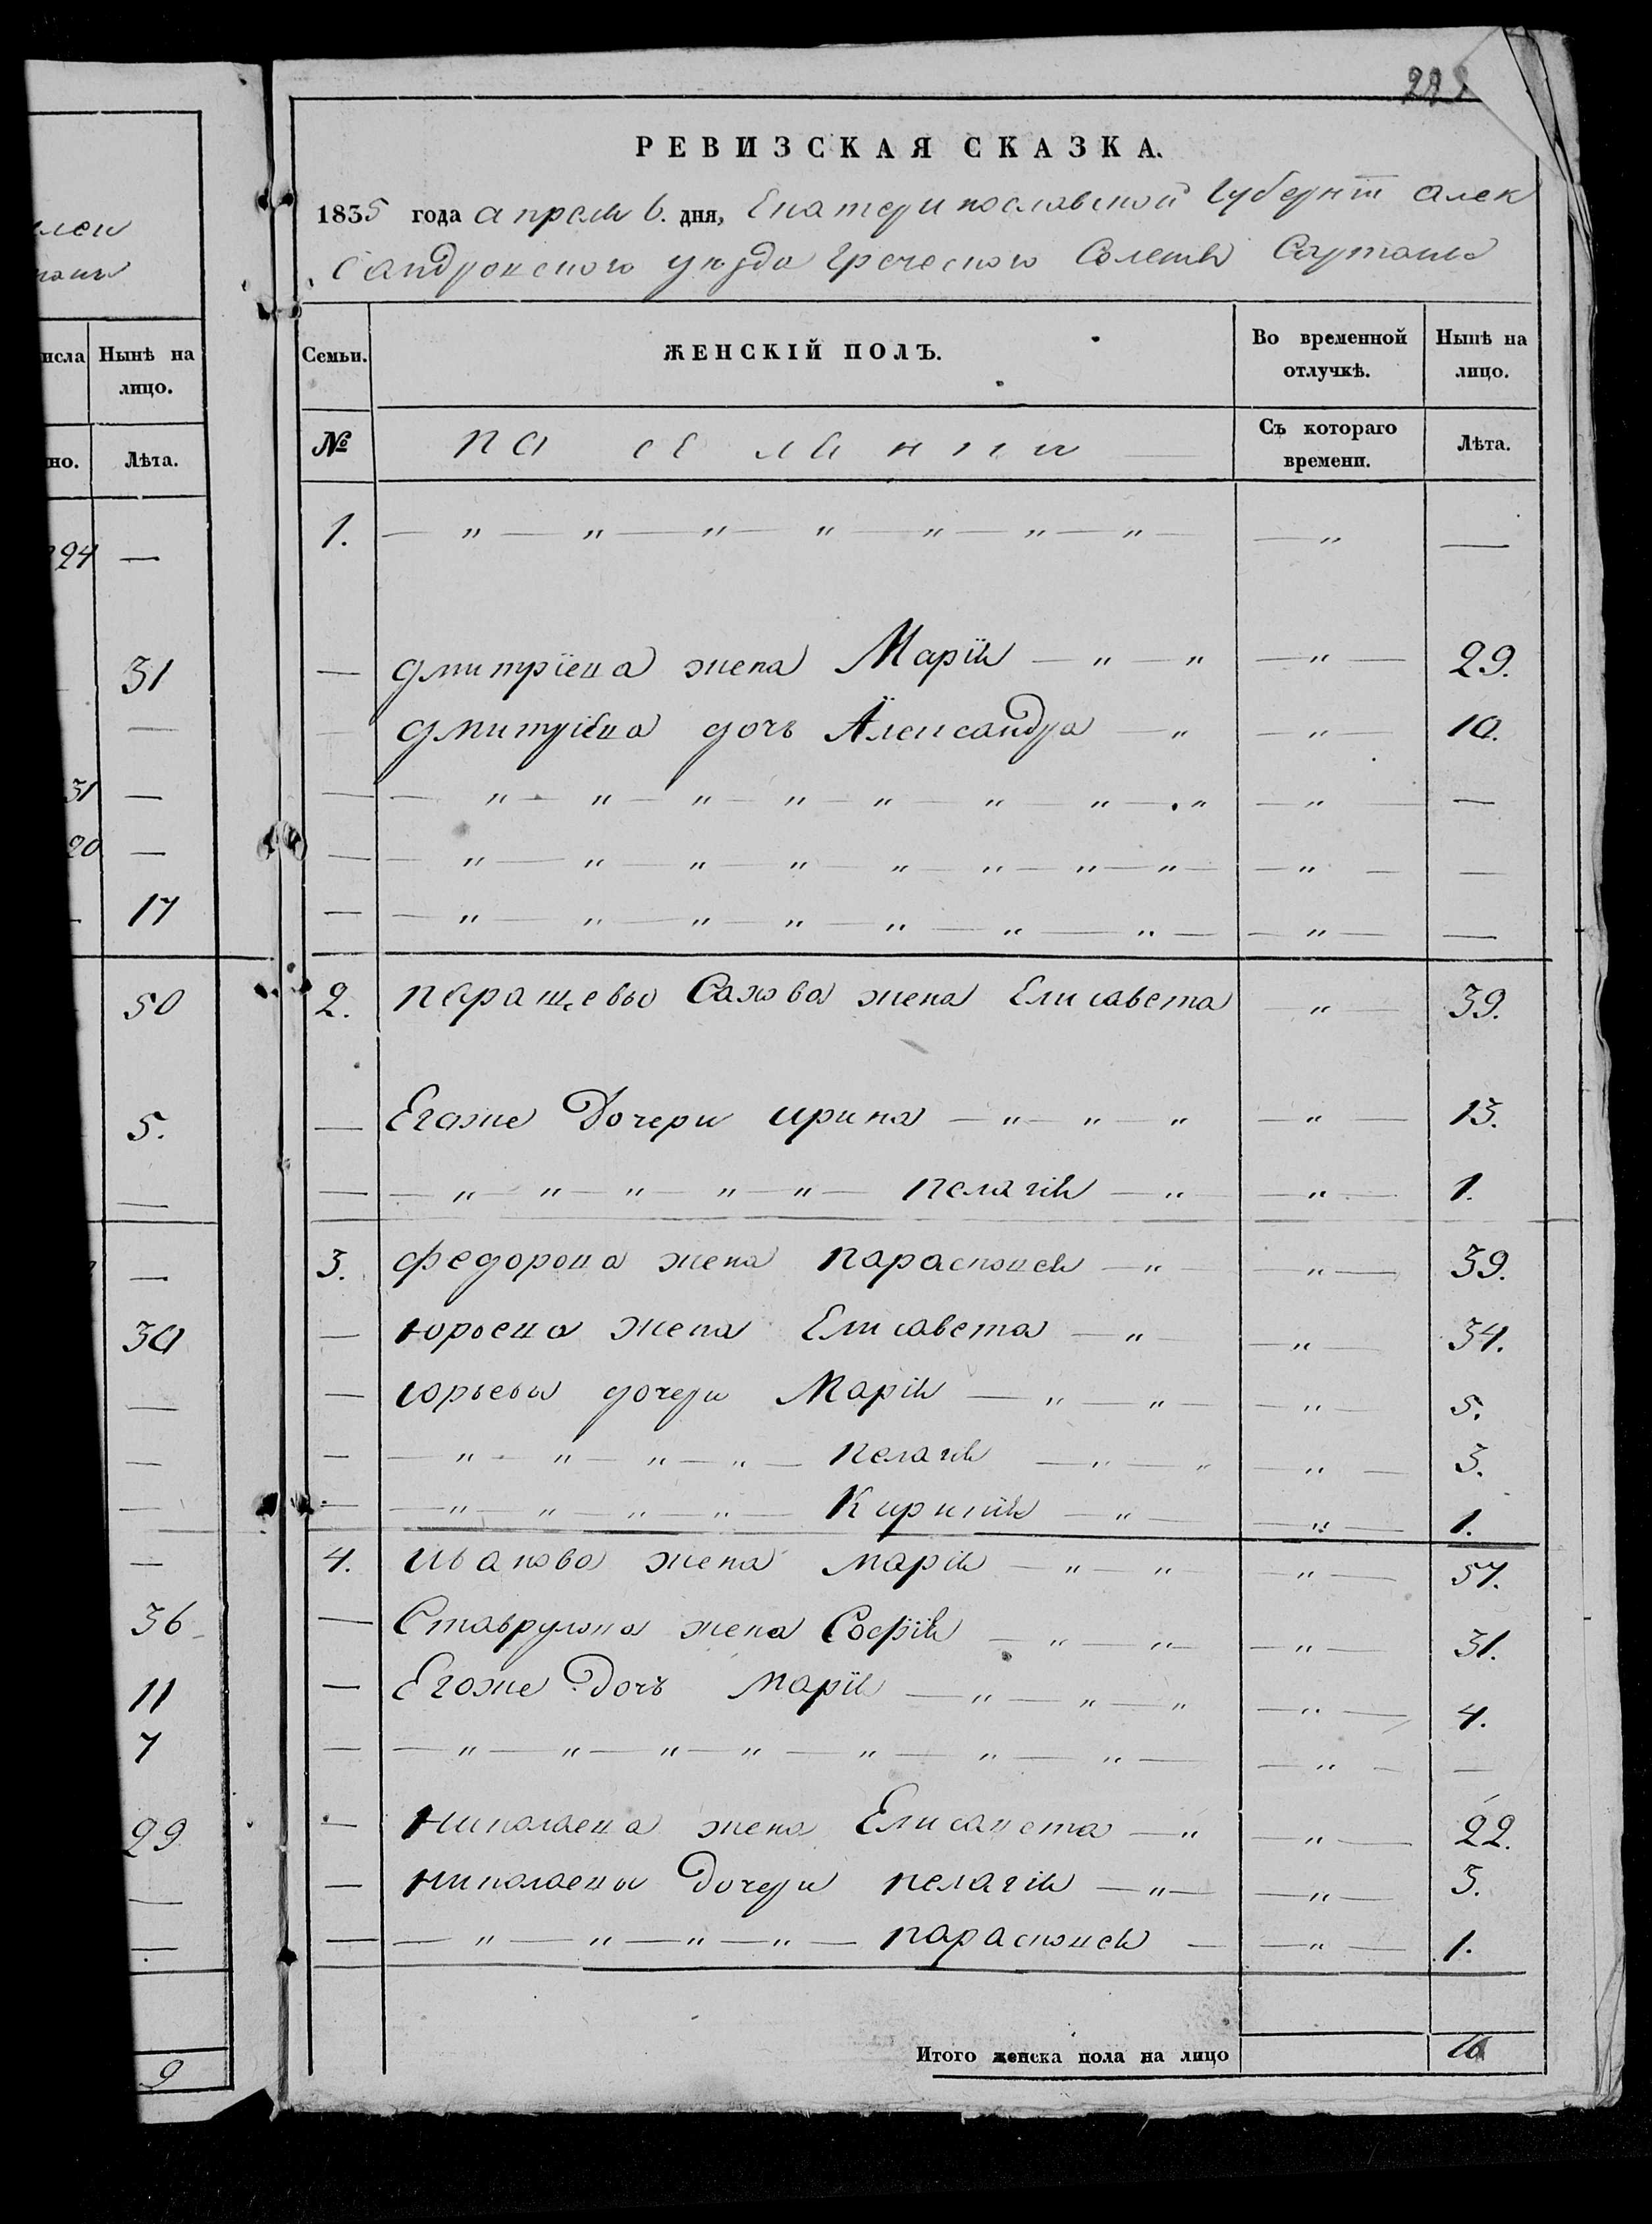 леи
тани
исла Нынѣ на
лицо.
но. Лѣта.
24 —
31
—
31 —
20 —
17
50
5.
—
—
30
—
—
—
—
36
11
7
29
—
—
9
РЕВИЗСКАЯ СКАЗКА.
1835 года апреля 6. дня, Екатеринославской Губерніи Алек
сандровского уѣзда Греческого Селенія Сартаны
Семьи. ЖЕНСКІЙ ПОЛЪ. Во временной отлучкѣ. Нынѣ на лицо.
№ поселянки — Съ котораго времени. Лѣта.
1. — „ — „ — „ — „ — „ — „ — „ — — „ —
— Дмитріева жена Марія — „ — „ — „ — 29.
— Дмитріева дочь Александра — „ — „ — 10.
— — „ — „ — „ — „ — „ — „ — „ — „ — „ —
— — „ — „ — „ — „ — „ — „ — „ — „ — — „ — —
— — „ — „ — „ — „ — „ — „ — „ — — „ — —
2. Паращевы жена Елисавета — „ — 39.
— Егоже Дочери Ирина — „ — „ — „ — „ — 13.
— — „ — „ — „ — „ — „ — Пелагія — „ — „ — 1.
3. Федорова жена Парасковея — „ — — „ — 39.
— Юрьева жена Елисавета — „ — — „ — 34.
— Юрьевы дочери Марія — „ — „ — — „ — 5.
— — „ — „ — „ — „ — Пелагія — „ — „ — „ — 3.
— — „ — „ — „ — „ — — „ — — „ — 1.
4. Иванова жена Марія — „ — „ — — „ — 57.
— Ставрулова жена Софія — „ — „ — — „ — 31.
— Егоже Дочь Марія — „ — „ — „ — „ — 4.
— — „ — „ — „ — „ — „ — „ — „ — — „ — —
— Николаева жена Елисавета — „ — „ — 22.
— Николаевы Дочери Пелагія — „ — — „ — 3.
— — „ — „ — „ — „ — Парасковея — — „ — 1.
Итого женска пола на лицо 16